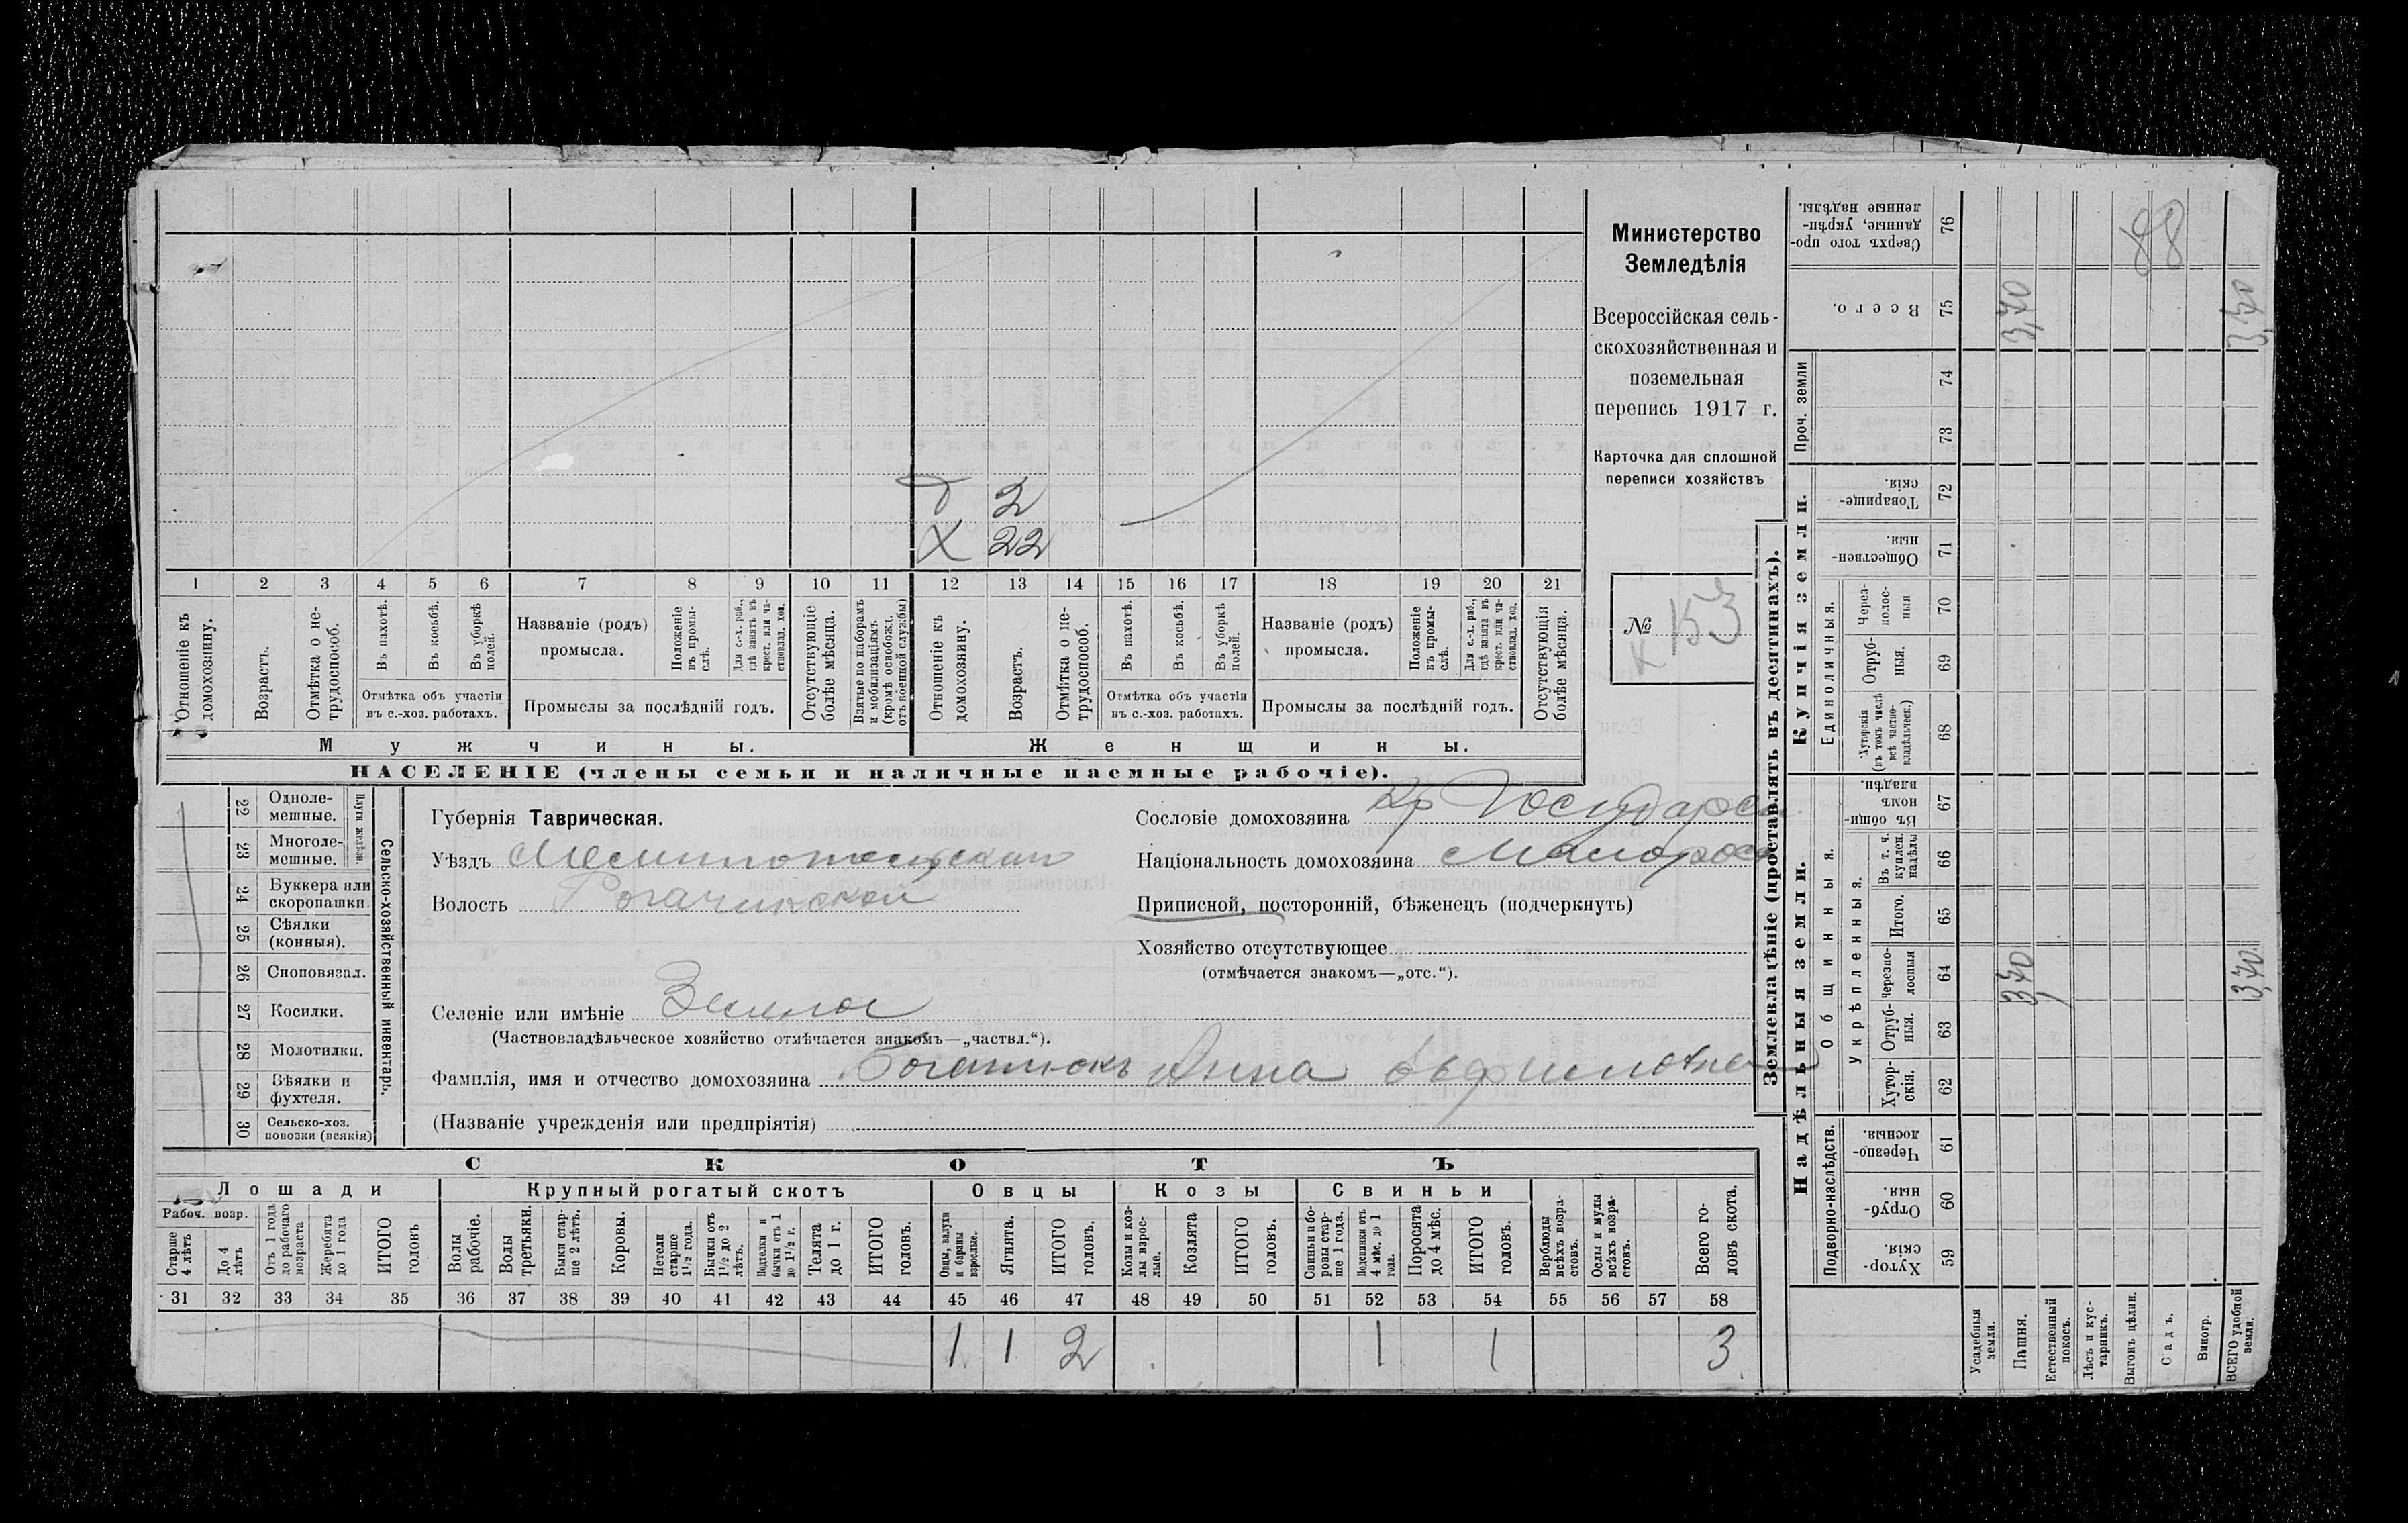 Министерство
Земледѣлія
Всероссійская сель-
скохозяйственная и
поземельная
перепись 1917 г.
Карточка для сплошной
переписи хозяйствъ
№ К 153
д 2
Х 22
1 2 3 4 5 6 7 8 9 10 11 12 13 14 15 16 17 18 19 20 21
Отношеніе къ домохозяину.
Возрастъ.
Отмѣтка о не-трудоспособ.
Въ пахотѣ.
Въ косьбѣ.
Въ уборкѣ полей.
Отмѣтка объ участіи
въ с.-хоз. работахъ.
Названіе (родъ)
промысла.
Положеніе въ промы-слѣ.
Для с.-х. раб., гдѣ занятъ въ крест. или ча-ствовлад. хоз.
Промыслы за послѣдній годъ.
Отсутствующіе болѣе мѣсяца.
Взятые по наборамъ и мобилизаціямъ (кромѣ освобожд. отъ военной службы)
Отношеніе къ домохозяину.
Возрастъ.
Отмѣтка о не-трудоспособ.
Въ пахотѣ.
Въ косьбѣ.
Въ уборкѣ полей.
Отмѣтка объ участіи
въ с.-хоз. работахъ.
Названіе (родъ)
промысла.
Положеніе въ промы-слѣ.
Для с.-х. раб., гдѣ занята въ крест. или ча-ствовлад. хоз.
Промыслы за послѣдній годъ.
Отсутствующія болѣе мѣсяца.
Мужчины. Женщины.
НАСЕЛЕНІЕ (члены семьи и наличные наемные рабочіе).
22 Одноле-мешные.
23 Многоле-мешные.
Плуги желѣзн.
24 Буккера или скоропашки.
25 Сѣялки (конныя).
26 Сноповязал.
27 Косилки.
28 Молотилки.
29 Вѣялки и фухтеля.
30 Сельско-хоз. повозки (всякія)
Сельско-хозяйственный инвентарь.
Губернія Таврическая.
Уѣздъ Мелитопольскій
Волость Рогачикской
Селеніе или имѣніе
(Частновладѣльческое хозяйство отмѣчается знакомъ—„частвл.“).
Фамилія, имя и отчество домохозяина Богатюкъ Анна
(Названіе учрежденія или предпріятія)
Сословіе домохозяина Кр Государс
Національность домохозяина Малоросс
Приписной, посторонній, бѣженецъ (подчеркнуть)
Хозяйство отсутствующее
(отмѣчается знакомъ—„отс.“).
СКОТЪ
Лошади Крупный рогатый скотъ Овцы Козы Свиньи
Рабоч. возр.
Старше 4 лѣтъ
До 4 лѣтъ
Отъ 1 года до рабочаго возраста
Жеребята до 1 года
ИТОГО головъ
Волы рабочіе.
Волы третьяки.
Быки стар-ше 2 лѣтъ.
Коровы.
Нетели старше 1½ года.
Бычки отъ 1½ до 2 лѣтъ.
Подтелки и бычки отъ 1 до 1½ г.
Телята до 1 г.
ИТОГО головъ.
Овцы, валухи и бараны взрослые.
Ягнята.
ИТОГО головъ.
Козы и коз-лы взрос-лые.
Козлята
ИТОГО головъ.
Свиньи и бо-ровы стар-ше 1 года.
Подсвинки отъ 4 мѣс. до 1 года.
Поросята до 4 мѣс.
ИТОГО головъ.
Верблюды всѣхъ возра-стовъ.
Ослы и мулы всѣхъ возра-стовъ.
Всего го-ловъ скота.
31 32 33 34 35 36 37 38 39 40 41 42 43 44 45 46 47 48 49 50 51 52 53 54 55 56 57 58
1 1 2 1 1 3
Землевладѣніе (проставлять въ десятинахъ).
Надѣльныя земли. Купчія земли.
Проч. земли
Подворно-наслѣдств.
Общинныя.
Укрѣпленныя.
Единоличныя.
Хутор-скія. 59
Отруб-ныя. 60
Черезпо-лосныя. 61
Хутор-скія. 62
Отруб-ныя. 63
Черезпо-лосныя 64
Итого. 65
Въ т. ч. куплен. надѣлы 66
Въ общи-номъ владѣн. 67
Хуторскія (въ томъ числѣ всѣ частно-владѣльческ.) 68
Отруб-ныя. 69
Через-полос-ныя 70
Обществен-ныя. 71
Товарище-скія. 72
73
74
Всего. 75
Сверхъ того про-данные, укрѣп-ленные надѣлы. 76
Усадебныя земли.
Пашня. 3,70 3,70
Естественный покосъ.
Лѣсъ и кус-тарникъ.
Выгонъ цѣлин.
Садъ.
Виногр.
ВСЕГО удобной земли. 3,70 3,70
88